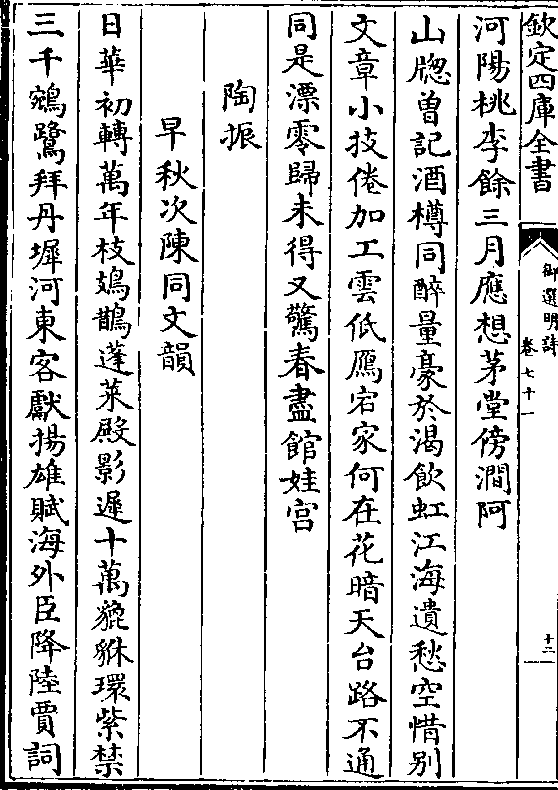 欽定四庫全書
御選明詩
卷七十一
十二
河陽桃李餘三月應想茅堂傍澗阿
山牕曽記酒樽同醉量豪於渴飲虹江海遺愁空惜别
文章小技倦加工雲低鴈宕家何在花暗天台路不通
同是漂零歸未得又驚春盡館娃宫
陶振
早秋次陳同文韻
日華初轉萬年枝鳷鵲蓬萊殿影遲十萬貔貅環紫禁
三千鵷鷺拜丹墀河東客獻揚雄賦海外臣降陸賈詞